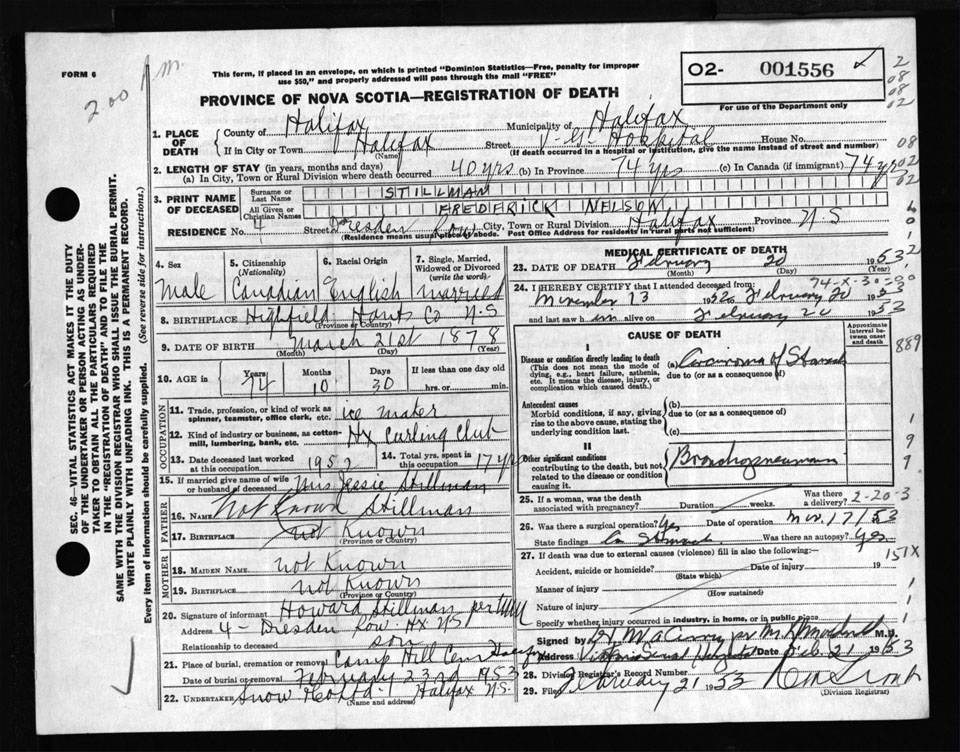 FORM 6
200
This form, if placed in an envelope, on which is printed "Dominion Statistics—Free, penalty for improper
use $50," and properly addressed will pass through the mail "FREE"
O2- 001556
For use of the Department only
2
08
08
02
PROVINCE OF NOVA SCOTIA—REGISTRATION OF DEATH
1. PLACE OF DEATH
County of Halifax Municipality of Halifax
If in City or Town Halifax (Name) Street V-G Hospital House No.
(If death occurred in a hospital or institution, give the name instead of street and number)
08
2. LENGTH OF STAY (in years, months and days)
(a) In City, Town or Rural Division where death occurred 40 yrs (b) In Province 74 yrs (c) In Canada (if immigrant) 74 yrs
02
02
3. PRINT NAME OF DECEASED
Surname or Last Name STILLMAN
All Given or Christian Names FREDERICK NEILSON
RESIDENCE No. 4 Street Dresden Row City, Town or Rural Division Halifax Province N S
(Residence means usual place of abode. Post Office Address for residents of rural parts not sufficient)
4. Sex Male
5. Citizenship (Nationality) Canadian
6. Racial Origin English
7. Single, Married, Widowed or Divorced (write the words) married
8. BIRTHPLACE Highfield Hants Co N-S
(Province or Country)
9. DATE OF BIRTH March 21st 1878
(Month) (Day) (Year)
10. AGE in Years 74 Months 10 Days 30 If less than one day old hrs. or min.
OCCUPATION
11. Trade, profession, or kind of work as spinner, teamster, office clerk, etc. ice maker
12. Kind of industry or business, as cotton-mill, lumbering, bank, etc. Hx Curling Club
13. Date deceased last worked at this occupation 1952
14. Total yrs. spent in this occupation 17 yrs
15. If married give name of wife or husband of deceased Mrs Jessie Stillman
FATHER
16. NAME not Known Stillman
17. BIRTHPLACE not Known
(Province or Country)
MOTHER
18. MAIDEN NAME not Known
19. BIRTHPLACE not Known
(Province or Country)
20. Signature of informant Howard Stillman per
Address 4- Dresden Row. Hx NS
Relationship to deceased son
21. Place of burial, cremation or removal Camp Hill Cem
Date of burial or removal February 23rd 1953
22. UNDERTAKER Snow Halifax N.S.
(Name and address)
MEDICAL CERTIFICATE OF DEATH
23. DATE OF DEATH February 20 1953
(Month) (Day) (Year)
2
74-X-30-
24. I HEREBY CERTIFY that I attended deceased from:
November 13 1952 to February 20 1953
and last saw him alive on February 20 1953
CAUSE OF DEATH
Approximate interval between onset and death
I
Disease or condition directly leading to death
(This does not mean the mode of dying, e.g., heart failure, asthenia, etc. It means the disease, injury, or complication which caused death.)
(a) Carcinoma of Stomach
due to (or as a consequence of)
889
Antecedent causes
Morbid conditions, if any, giving rise to the above cause, stating the underlying condition last.
(b)
due to (or as a consequence of)
(c)
1
II
Other significant conditions
contributing to the death, but not related to the disease or condition causing it.
Bronchopneumonia
9
9
25. If a woman, was the death associated with pregnancy? Duration weeks. Was there a delivery?
2-20-3
26. Was there a surgical operation? Yes Date of operation 17/53
State findings Ca Stomach Was there an autopsy? Yes
151X
27. If death was due to external causes (violence) fill in also the following:
Accident, suicide or homicide? (State which) Date of injury 19
Manner of injury (How sustained)
Nature of injury
Specify whether injury occurred in industry, in home, or in public place
Signed by M.D.
Address Victoria General Hospital Date Feb. 21 1953
28. Division Registrar's Record Number
29. Filed February 21 1953
(Division Registrar)
SEC. 46—VITAL STATISTICS ACT MAKES IT THE DUTY
OF THE UNDERTAKER OR PERSON ACTING AS UNDER-
TAKER TO OBTAIN ALL THE PARTICULARS REQUIRED
IN THE "REGISTRATION OF DEATH" AND TO FILE THE
SAME WITH THE DIVISION REGISTRAR WHO SHALL ISSUE THE BURIAL PERMIT.
WRITE PLAINLY WITH UNFADING INK. THIS IS A PERMANENT RECORD.
Every item of information should be carefully supplied. (See reverse side for instructions.)